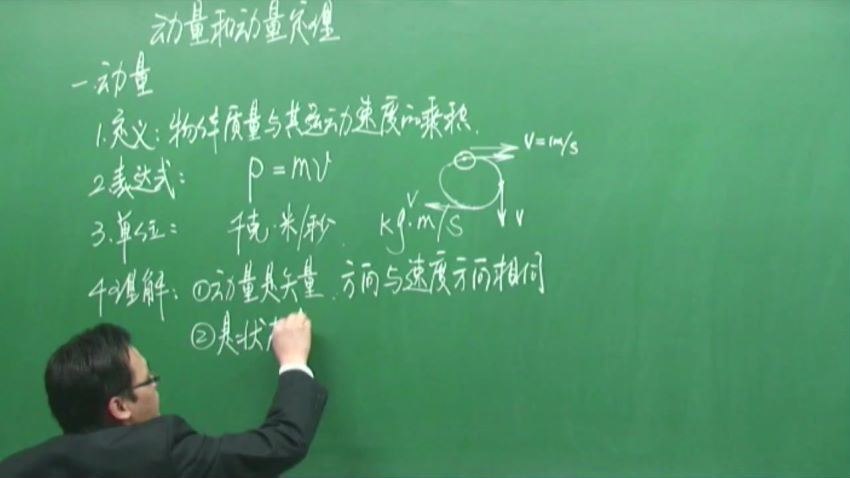 动量和动量定理
一.动量
1.定义：物体质量与其运动速度的乘积.
V=1m/s
2.表达式： p=mv
V
V
3.单位： 千克·米/秒. kg·m/s
4.理解：①动量是矢量.方向与速度方向相同
②是状